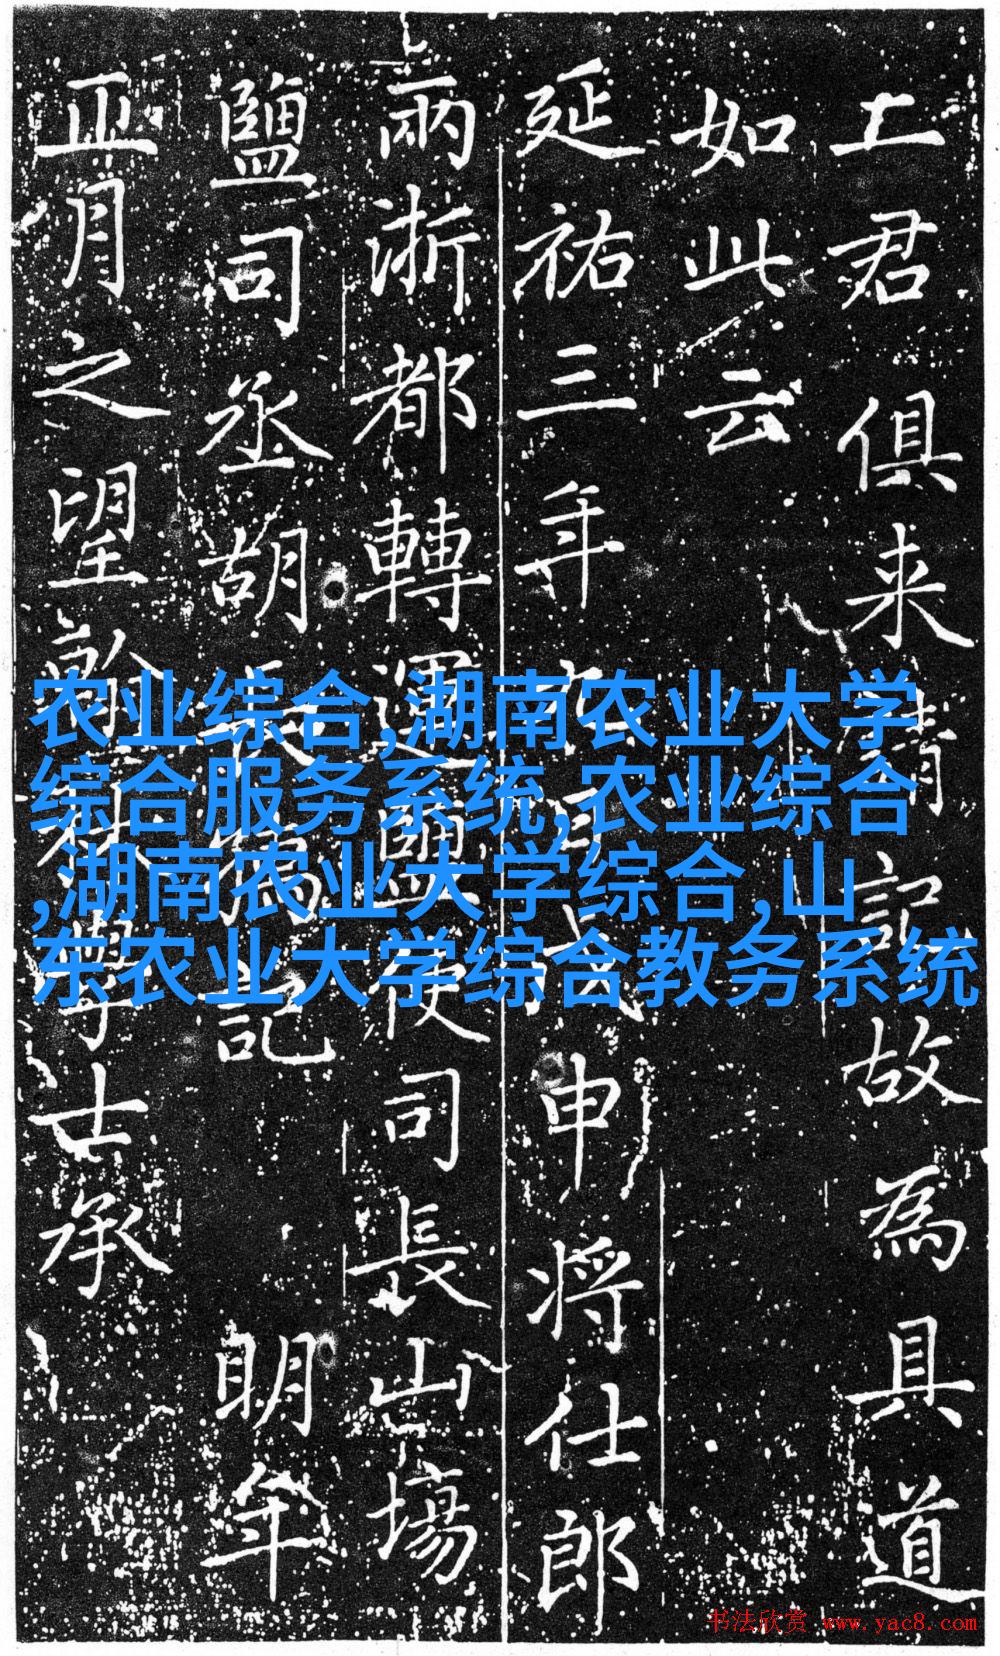 君俱来請記故為具道
如此云
延祐三年月申将仕郎
兩浙都轉運鹽使司長山場
鹽司丞胡長孺記 明年
正月之望翰林學士承
农业综合,湖南农业大学
综合服务系统,农业综合
,湖南农业大学综合,山
东农业大学综合教务系统
书法欣赏 www.yac8.com